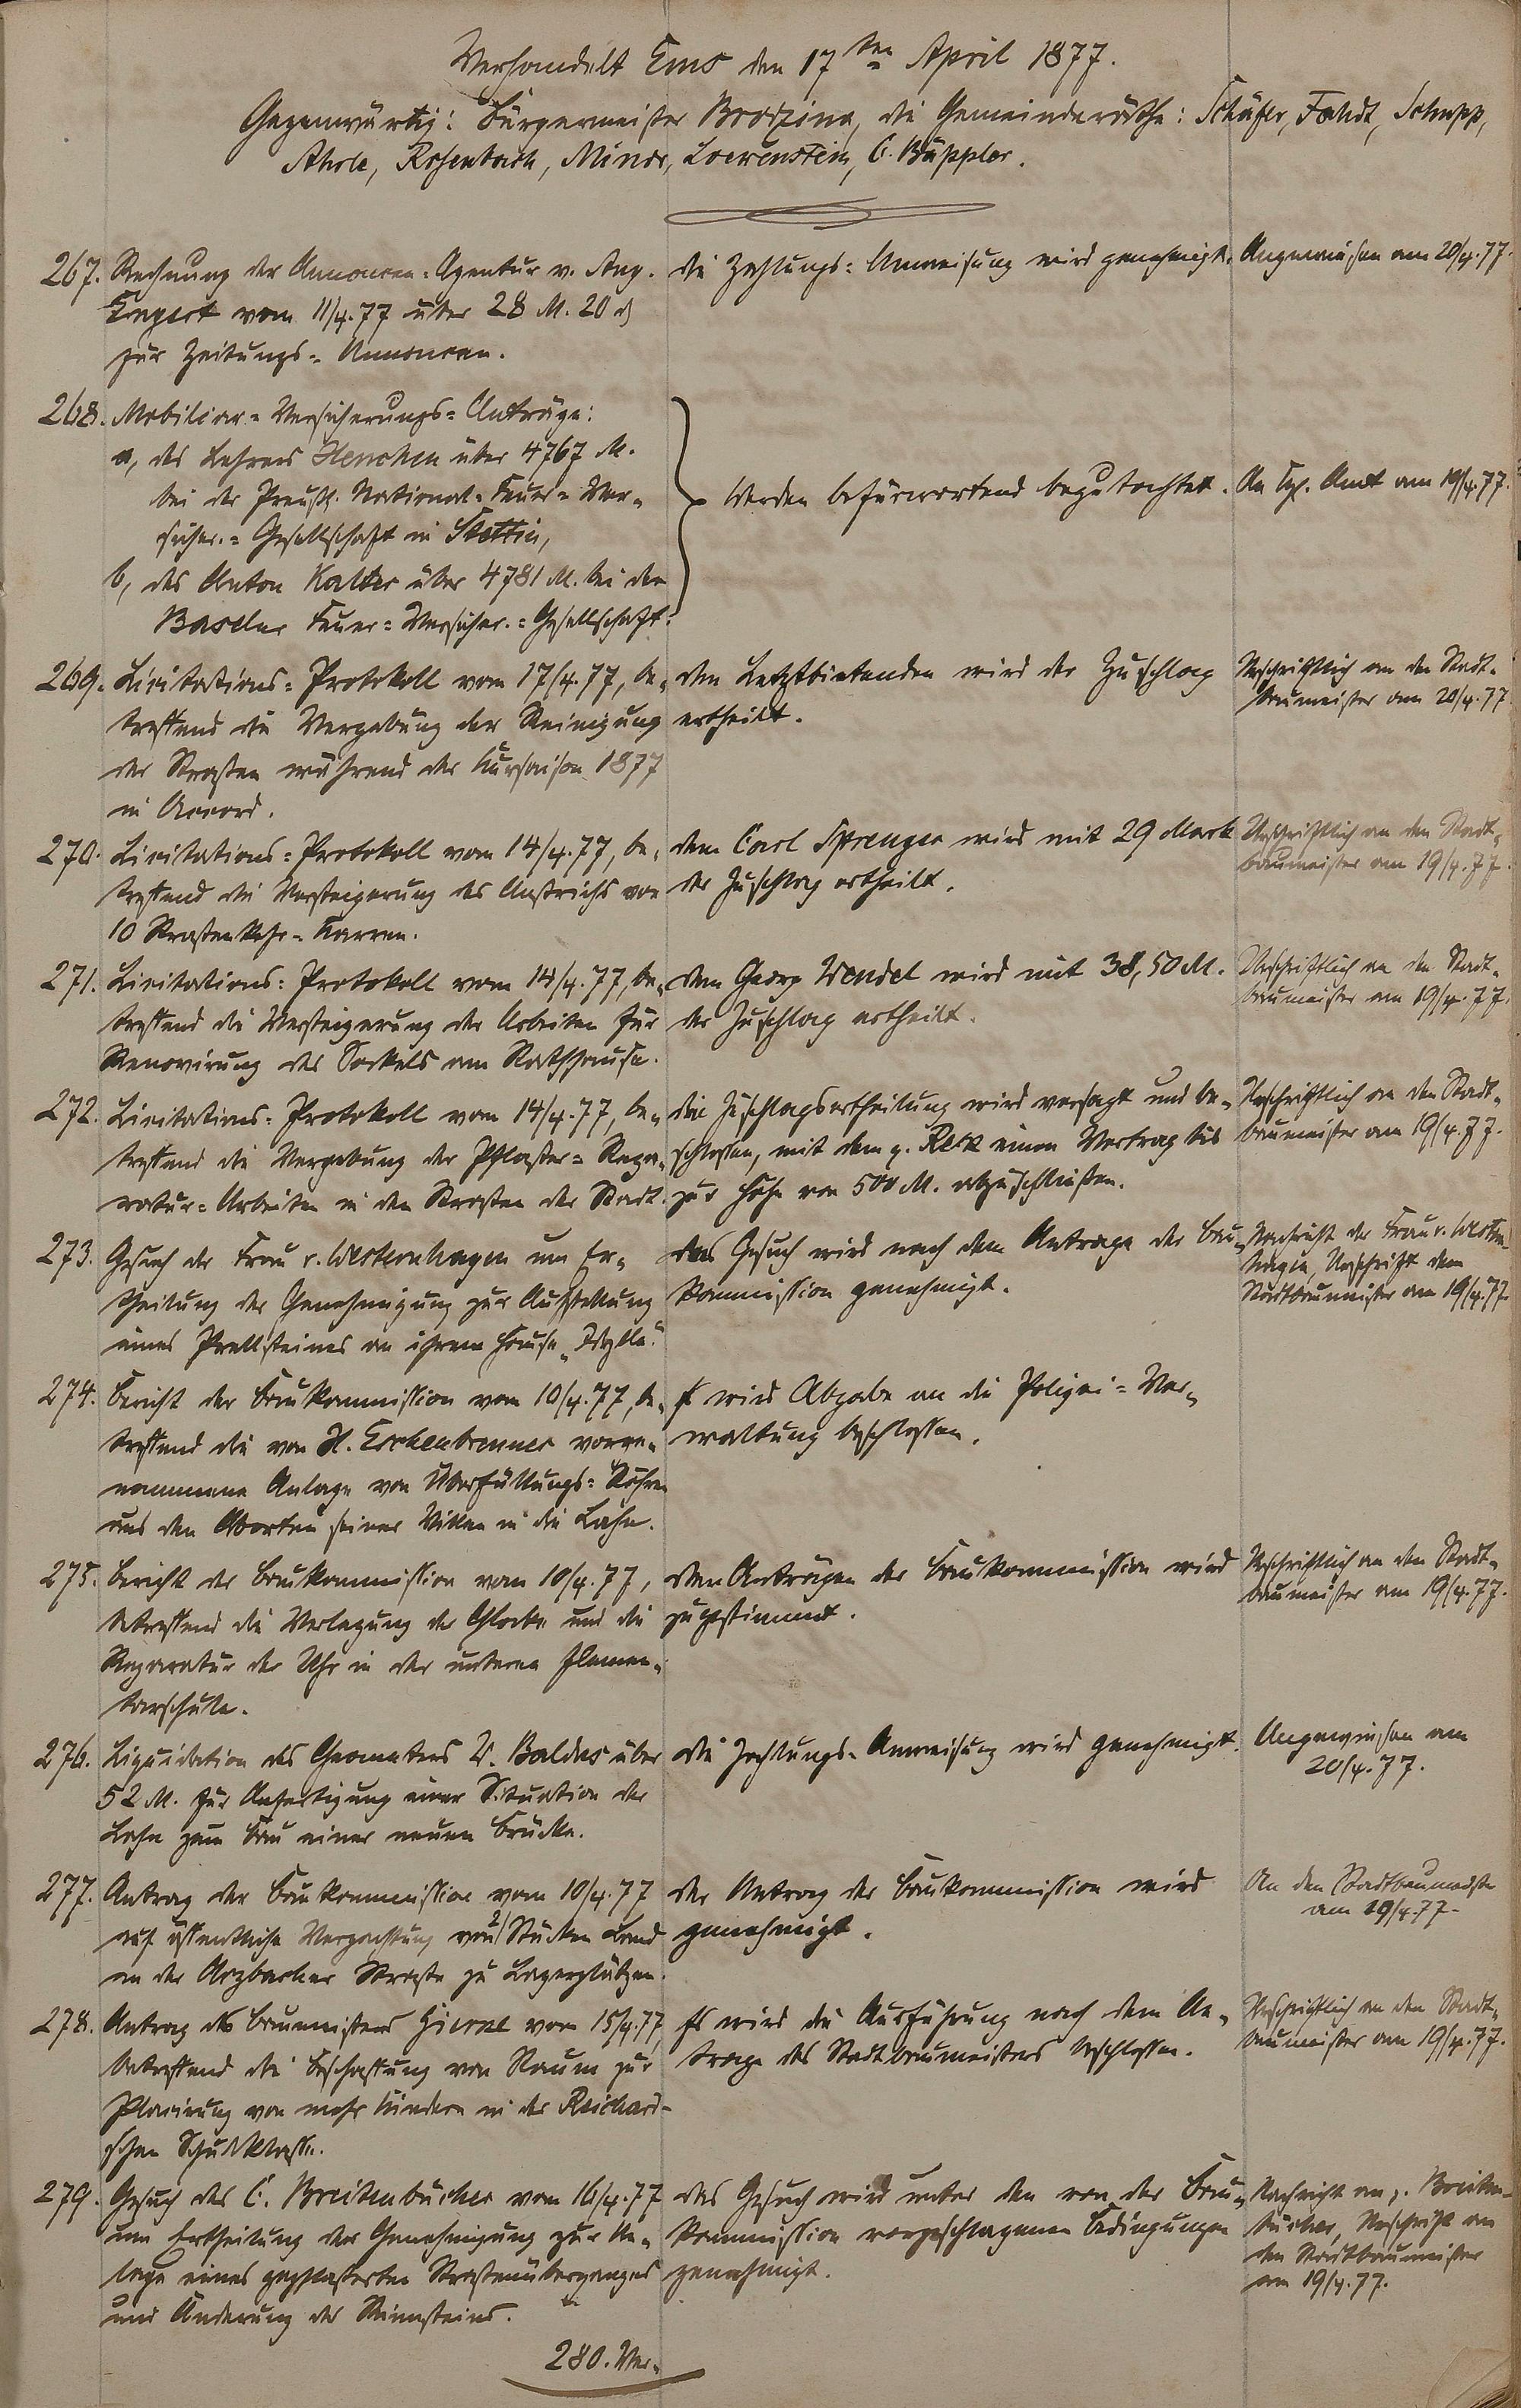 Verhandelt Ems den 17ten April 1877.
Gegenwärtig: Bürgermeister Brodzina, die Gemeinderäthe: Schäfer, Fahdt, Schupp,
Ahrle, Rosenbach, Minor, Loewenstein, C. Büppler.
267. Rechnung der Annoncen-Agentur v. Aug.
vom 11/4.77 über 28 M. 20 ₰
für Zeitungs-Annoncen.
die Zahlungs-Anweisung wird genehmigt.
Angewiesen am 20/4.77.
268. Mobiliar-Versicherungs-Anträge:
a, des Lehrers Henchen über 4767 M.
bei der Preuß. National-Feuer-Ver-
sicher.-Gesellschaft in Stettin,
b, des Anton Kalter über 4781 M. bei der
Baseler Feuer-Versicher.-Gesellschaft.
Werden befürwortend begutachtet.
An Kgl. Amt am 19/4.77.
269. Licitations-Protokoll vom 17/4.77, be-
treffend die Vergebung der Reinigung
der Straßen während der Kursaison 1877
in Accord.
den Letztbietenden wird der Zuschlag
ertheilt.
Urschriftlich an den Stadt-
baumeister am 20/4.77
270. Licitations-Protokoll vom 14/4.77, be-
treffend die Versteigerung des Anstrichs von
10 Straßenkehr-Karren.
dem Carl Sprenger wird mit 29 Mark
der Zuschlag ertheilt.
Urschriftlich an den Stadt-
baumeister am 19/4.77.
271. Licitations-Protokoll vom 14/4.77, be-
treffend die Versteigerung der Arbeiten für
Renovirung des Sockels am Rathhause.
dem Georg Wendel wird mit 38,50 M.
der Zuschlag ertheilt.
Urschriftlich an den Stadt-
baumeister am 19/4.77.
272. Licitations-Protokoll vom 14/4.77, be-
treffend die Vergebung der Pflaster-Repa-
ratur-Arbeiten in den Straßen der Stadt.
die Zuschlagsertheilung wird versagt und be-
schlossen, mit dem p. Reck einen Vertrag bis
zur Höhe von 500 M. abzuschließen.
Urschriftlich an den Stadt-
baumeister am 19/4.77.
273. Gesuch der Frau v. Westernhagen um Er-
theilung der Genehmigung zur Aufstellung
eines Prellsteines an ihrem Hause „Idylle“.
das Gesuch wird nach dem Antrage der Bau-
kommission genehmigt.
Nachricht der Frau v. Western-
hagen, Urschrift dem
Stadtbaumeister am 19/4.77.
274. Bericht der Baukommission vom 10/4.77, be-
treffend die von H. Eschenbrenner vorge-
nommene Anlage von Überfüllungs-Röhren
aus den Aborten seiner Villen in die Lahn.
Es wird Abgabe an die Polizei-Ver-
waltung beschlossen.
275. Bericht der Baukommission vom 10/4.77,
betreffend die Verlegung der Glocke und die
Reparatur der Uhr in der unteren Elemen-
tarschule.
den Anträgen der Baukommission wird
zugestimmt.
Urschriftlich an den Stadt-
baumeister am 19/4.77.
276. Liquidation des Geometers W. Baldus über
52 M. für Anfertigung einer Situation der
Lahn zum Bau einer neuen Brücke.
die Zahlungs-Anweisung wird genehmigt.
Angewiesen am
20/4.77.
277. Antrag der Baukommission vom 10/4.77
auf öffentliche Verpachtung von 2 Stücken Land
an der Arzbacher Straße zu Lagerplätzen.
der Antrag der Baukommission wird
genehmigt.
An den Stadtbaumeister
am 19/4.77.
278. Antrag des Baumeisters vom 15/4.77,
betreffend die Beschaffung von Raum zur
Placirung von mehr Kindern in der Reichard-
schen Schulklasse.
Es wird die Ausführung nach dem An-
trage des Stadtbaumeisters beschlossen.
Urschriftlich an den Stadt-
baumeister am 19/4.77.
279. Gesuch des C. Breitenbücher vom 16/4.77
um Ertheilung der Genehmigung zur An-
lage eines gepflasterten Straßenüberganges
und Änderung des Rinnsteins.
das Gesuch wird unter den von der Bau-
kommission vorgeschlagenen Bedingungen
genehmigt.
Nachricht an p. Breiten-
bücher, Urschrift an
den Stadtbaumeister
am 19/4.77.
280. Ver-